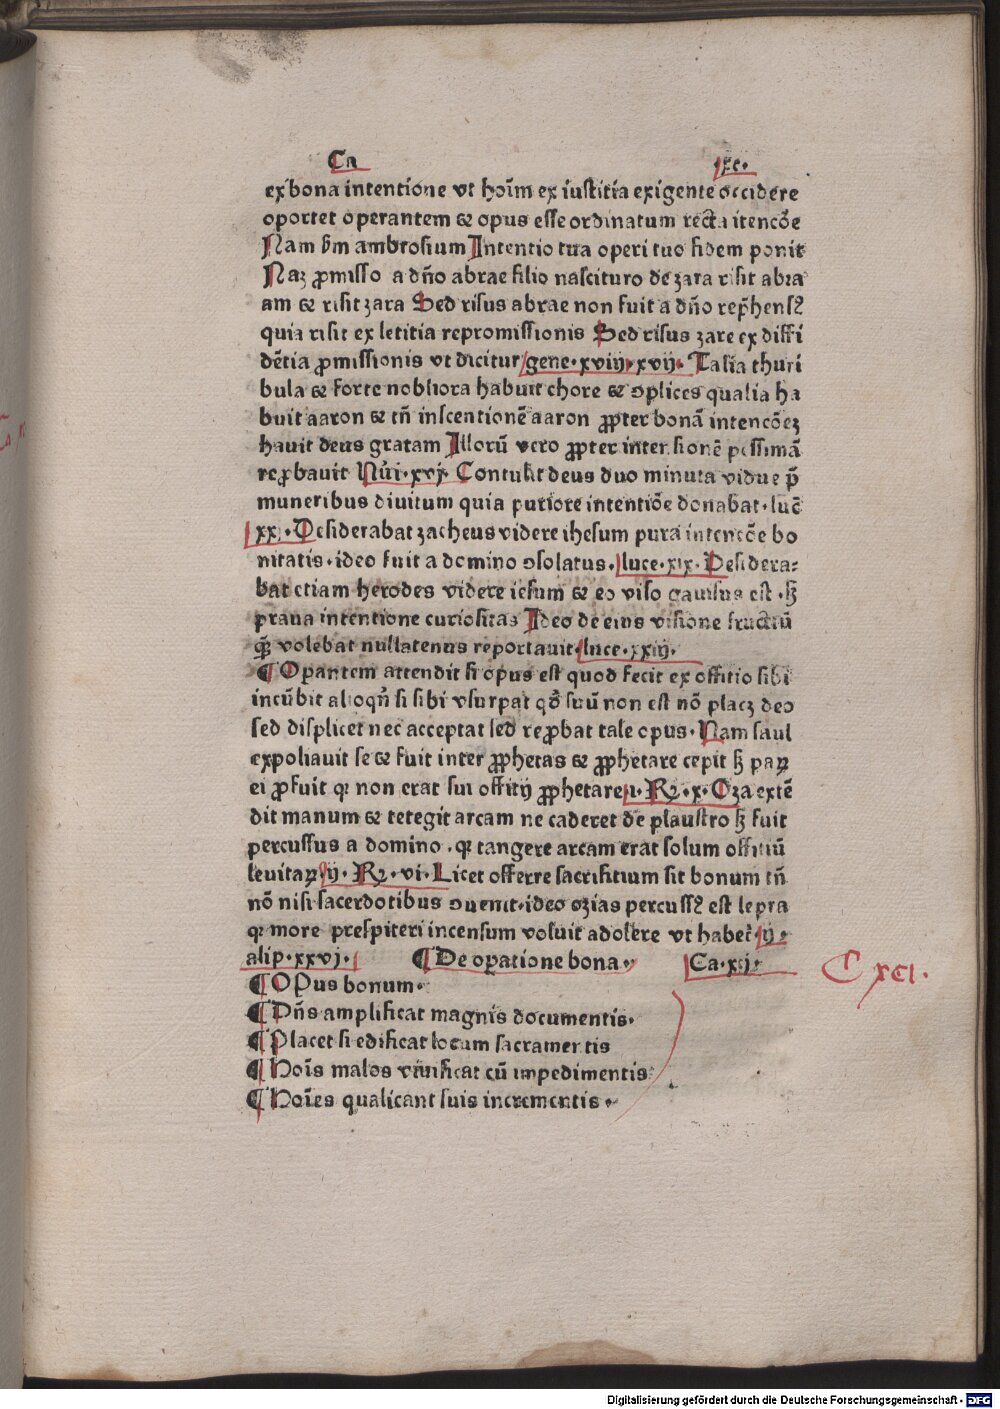 Ca .xc.
ex bona intentione vt hoīm ex iustitia exigente occidere
oportet operantem & opus esse ordinatum recta itencōe
Nam bm̄ ambrosium Intentio tua operi tuo fidem ponit
Naꝫ ꝓmisso a dño abrae filio nascituro de zara risit abra
am & risit zara Sed risus abrae non fuit a dño rep̄hensꝰ
quia risit ex letitia repromissionis Sed risus zare ex diffi
dētia ꝓmissionis vt dicitur gene.xviij.xvij. Talia thuri
bula & forte nobliora habuit chore & ↄplices qualia ha
buit aaron & tn̄ inscentionē aaron ꝓpter bonā intencōeꝫ
hauit deus gratam Illorū vero ꝓpter intentionē pessimā
reꝓbauit Nūi.xvj. Contulit deus duo minuta vidue p̄
muneribus diuitum quia puriore intentiōe donabat.lucē
xx. Desiderabat zacheus videre ihesum pura intencōe bo
nitatis.ideo fuit a domino ↄsolatus.luce.xix. Desidera⸗
bat etiam herodes videre iesum & eo viso gauisus est .sꝫ
praua intentione curiositas Ideo de eius visione fructū
quē volebat nullatenus reportauit.luce.xxiij.
¶ Opantem attendit si opus est quod fecit ex offitio sibi
incūbit alioqn̄ si sibi vsurpat qd̄ suū non est nō placꝫ deo
sed displicet nec acceptat sed reꝓbat tale opus. Nam saul
expoliauit se & fuit inter ꝓphetas & ꝓphetare cepit sꝫ paꝝ
ei ꝓfuit qꝛ non erat sui offitij ꝓphetare.i.Rꝝ.x. Oza extē
dit manum & tetegit arcam ne caderet de plaustro sꝫ fuit
percussus a domino .qꝛ tangere arcam erat solum offitiū
leuitaꝝ ij. Rꝝ.vi. Licet offerre sacrifitium sit bonum tn̄
nō nisi sacerdotibus ↄuenit.ideo ozias percussꝰ est lepra
qꝛ more prespiteri incensum voluit adolere vt habet̄ ij.
alip.xxvj. ¶ De oꝑatione bona. Ca.xj.
C xcı.
¶ Opus bonum.
¶ Dn̄s amplificat magnis documentis.
¶ Placet si edificat locum sacramentis
¶ Hoīs malos viuificat cū impedimentis
¶ Hoīes qualicant suis incrementis.
Digitalisierung gefördert durch die Deutsche Forschungsgemeinschaft - DFG